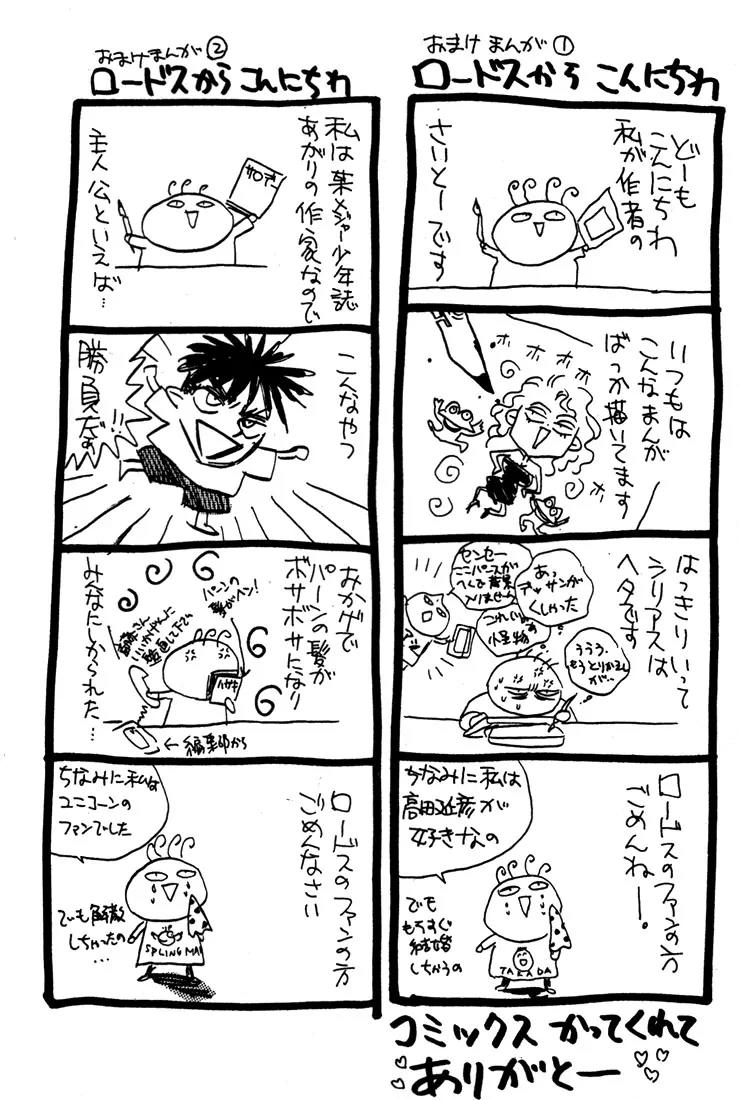 おまけまんが①
ロードスから こんにちわ
どーも
こんにちわ
私が作者の
さいとーです
いつもは
こんなまんが
ばっか描いてます
ホホホ
ホホ
はっきりいって
シリアスは
ヘタです
あっ
くしゃった
センセー
ここパースが
怪物
ううう、
ロードスのファンの方
ごめんねー。
ちなみに私は
高田延彦が
好きなの
でも
もうすぐ
結婚
しちゃうの
TAKADA
おまけまんが②
ロードスから こんにちわ
私は某メジャー少年誌
あがりの作家なので
主人公といえば…
こんなやつ
勝負だ!!
おかげで
パーンの髪が
ボサボサになり
みんなにしかられた…
パーンの
髪がヘン!
←編集部から
ロードスのファンの方
ごめんなさい
ちなみに私は
ユニコーンの
ファンでした
でも解散
しちゃったの
…
SPLING MAN
コミックス かってくれて
ありがとー